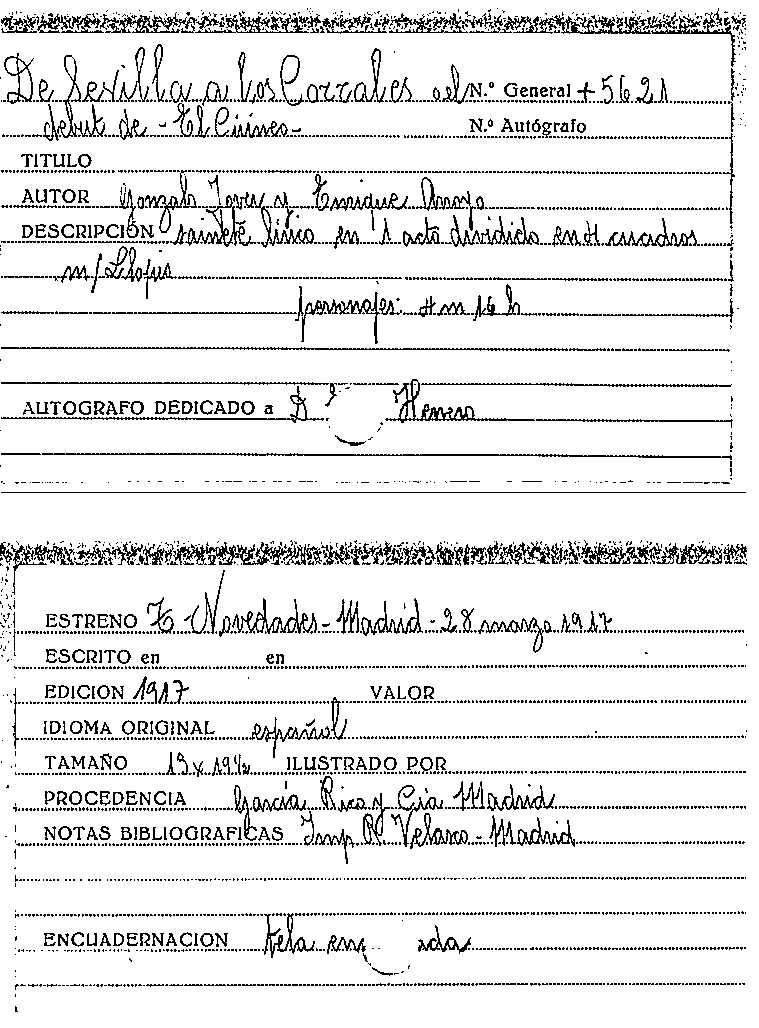 De Sevilla a los Corrales o el N.º General + 5621
debut de - El Cirineo - N.º Autógrafo
TITULO
AUTOR Gonzalo Jover y Enrique Arroyo
DESCRIPCIÓN sainete lírico en 1 acto dividido en 4 cuadros
m/ Llopis
personajes: 4 m 16 h
AUTOGRAFO DEDICADO a D Herrero
ESTRENO T Novedades - Madrid - 28 marzo 1917
ESCRITO en en
EDICION 1917 VALOR
IDIOMA ORIGINAL español
TAMAÑO 13 x 19½ ILUSTRADO POR
PROCEDENCIA García Rico y Cía Madrid
NOTAS BIBLIOGRAFICAS Imp R Velasco - Madrid
ENCUADERNACION tela